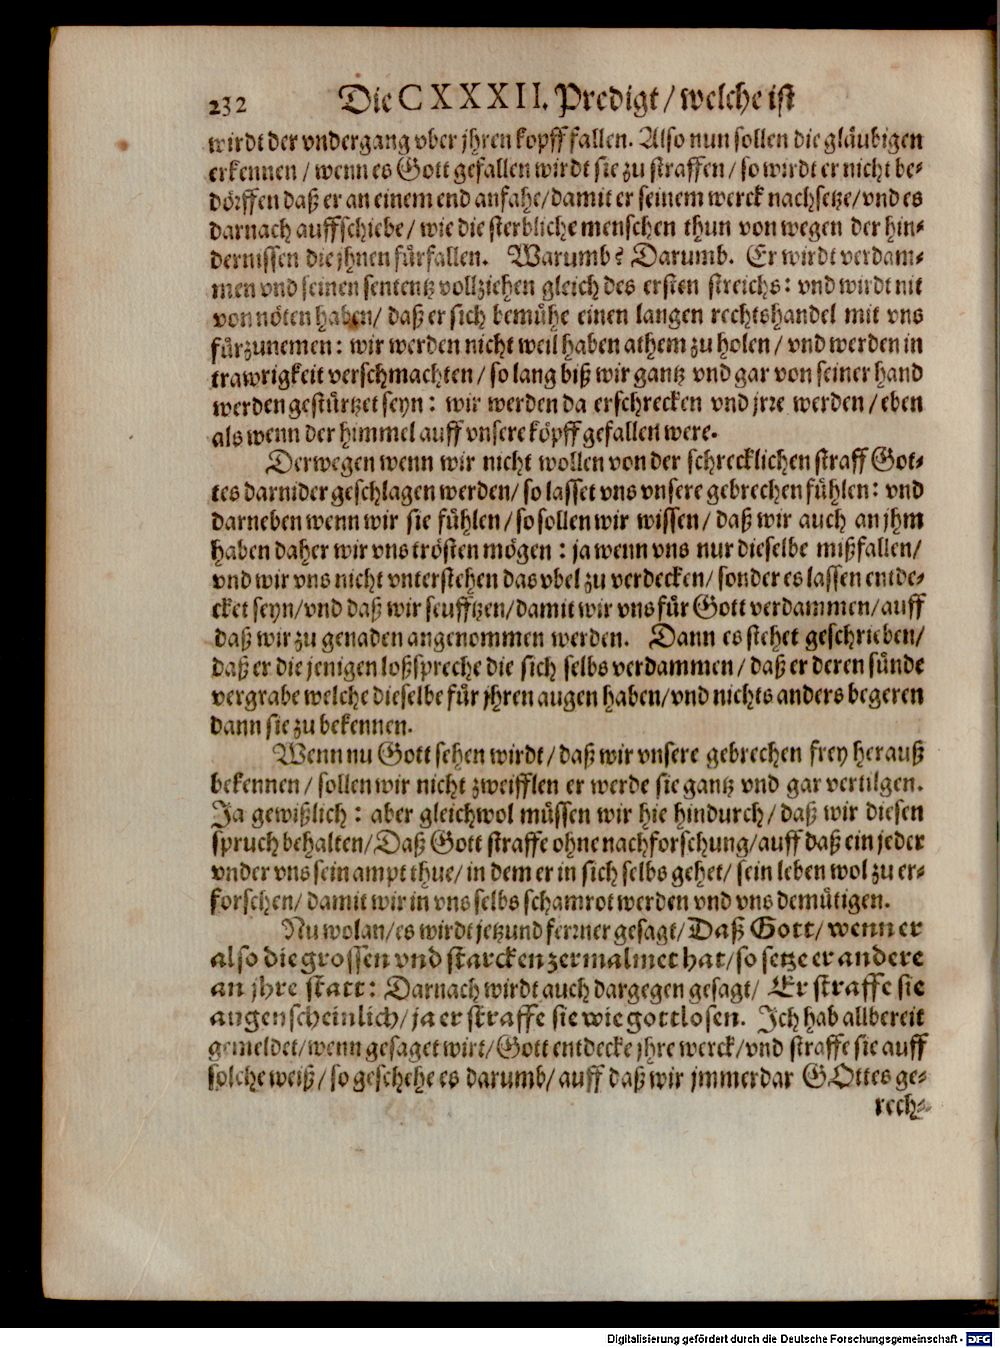 232 Die CXXXII. Predigt / welche ist
wirdt der vndergang vber jhren kopff fallen. Also nun sollen die gläubigen
erkennen / wenn es Gott gefallen wirdt sie zu straffen / so wirdt er nicht be-
dörffen daß er an einem end anfahe / damit er seinem werck nachsetze / vnd es
darnach auffschiebe / wie die sterbliche menschen thun von wegen der hin-
dernissen die jhnen fürfallen. Warumb? Darumb. Er wirdt verdam-
men vnd seinen sententz vollziehen gleich des ersten streichs: vnd wirdt nit
von nöten haben / daß er sich bemühe einen langen rechtshandel mit vns
fürzunemen: wir werden nicht weil haben athem zu holen / vnd werden in
trawrigkeit verschmachten / so lang biß wir gantz vnd gar von seiner hand
werden gestürtzet seyn: wir werden da erschrecken vnd jrre werden / eben
als wenn der himmel auff vnsere köpff gefallen were.
Derwegen wenn wir nicht wollen von der schrecklichen straff Got-
tes darnider geschlagen werden / so lasset vns vnsere gebrechen fühlen: vnd
darneben wenn wir sie fühlen / so sollen wir wissen / daß wir auch an jhm
haben daher wir vns trösten mögen: ja wenn vns nur dieselbe mißfallen /
vnd wir vns nicht vnterstehen das vbel zu verdecken / sonder es lassen entde-
cket seyn / vnd daß wir seufftzen / damit wir vns für Gott verdammen / auff
daß wir zu genaden angenommen werden. Dann es stehet geschrieben /
daß er die jenigen loßspreche die sich selbs verdammen / daß er deren sünde
vergrabe welche dieselbe für jhren augen haben / vnd nichts anders begeren
dann sie zu bekennen.
Wenn nu Gott sehen wirdt / daß wir vnsere gebrechen frey herauß
bekennen / sollen wir nicht zweifflen er werde sie gantz vnd gar vertilgen.
Ja gewißlich: aber gleichwol müssen wir hie hindurch / daß wir diesen
spruch behalten / Daß Gott straffe ohne nachforschung / auff daß ein jeder
vnder vns sein ampt thue / in dem er in sich selbs gehet / sein leben wol zu er-
forschen / damit wir in vns selbs schamrot werden vnd vns demütigen.
Nu wolan / es wirdt jetzund ferrner gesagt / Daß Gott / wenn er
also die grossen vnd starcken zermalmet hat / so setze er andere
an jhre statt: Darnach wirdt auch dargegen gesagt / Er straffe sie
augenscheinlich / ja er straffe sie wie gottlosen. Ich hab allbereit
gemeldet / wenn gesaget wirt / Gott entdecke jhre werck / vnd straffe sie auff
solche weiß / so geschehe es darumb / auff daß wir jmmerdar GOttes ge-
rech-
Digitalisierung gefördert durch die Deutsche Forschungsgemeinschaft - DFG